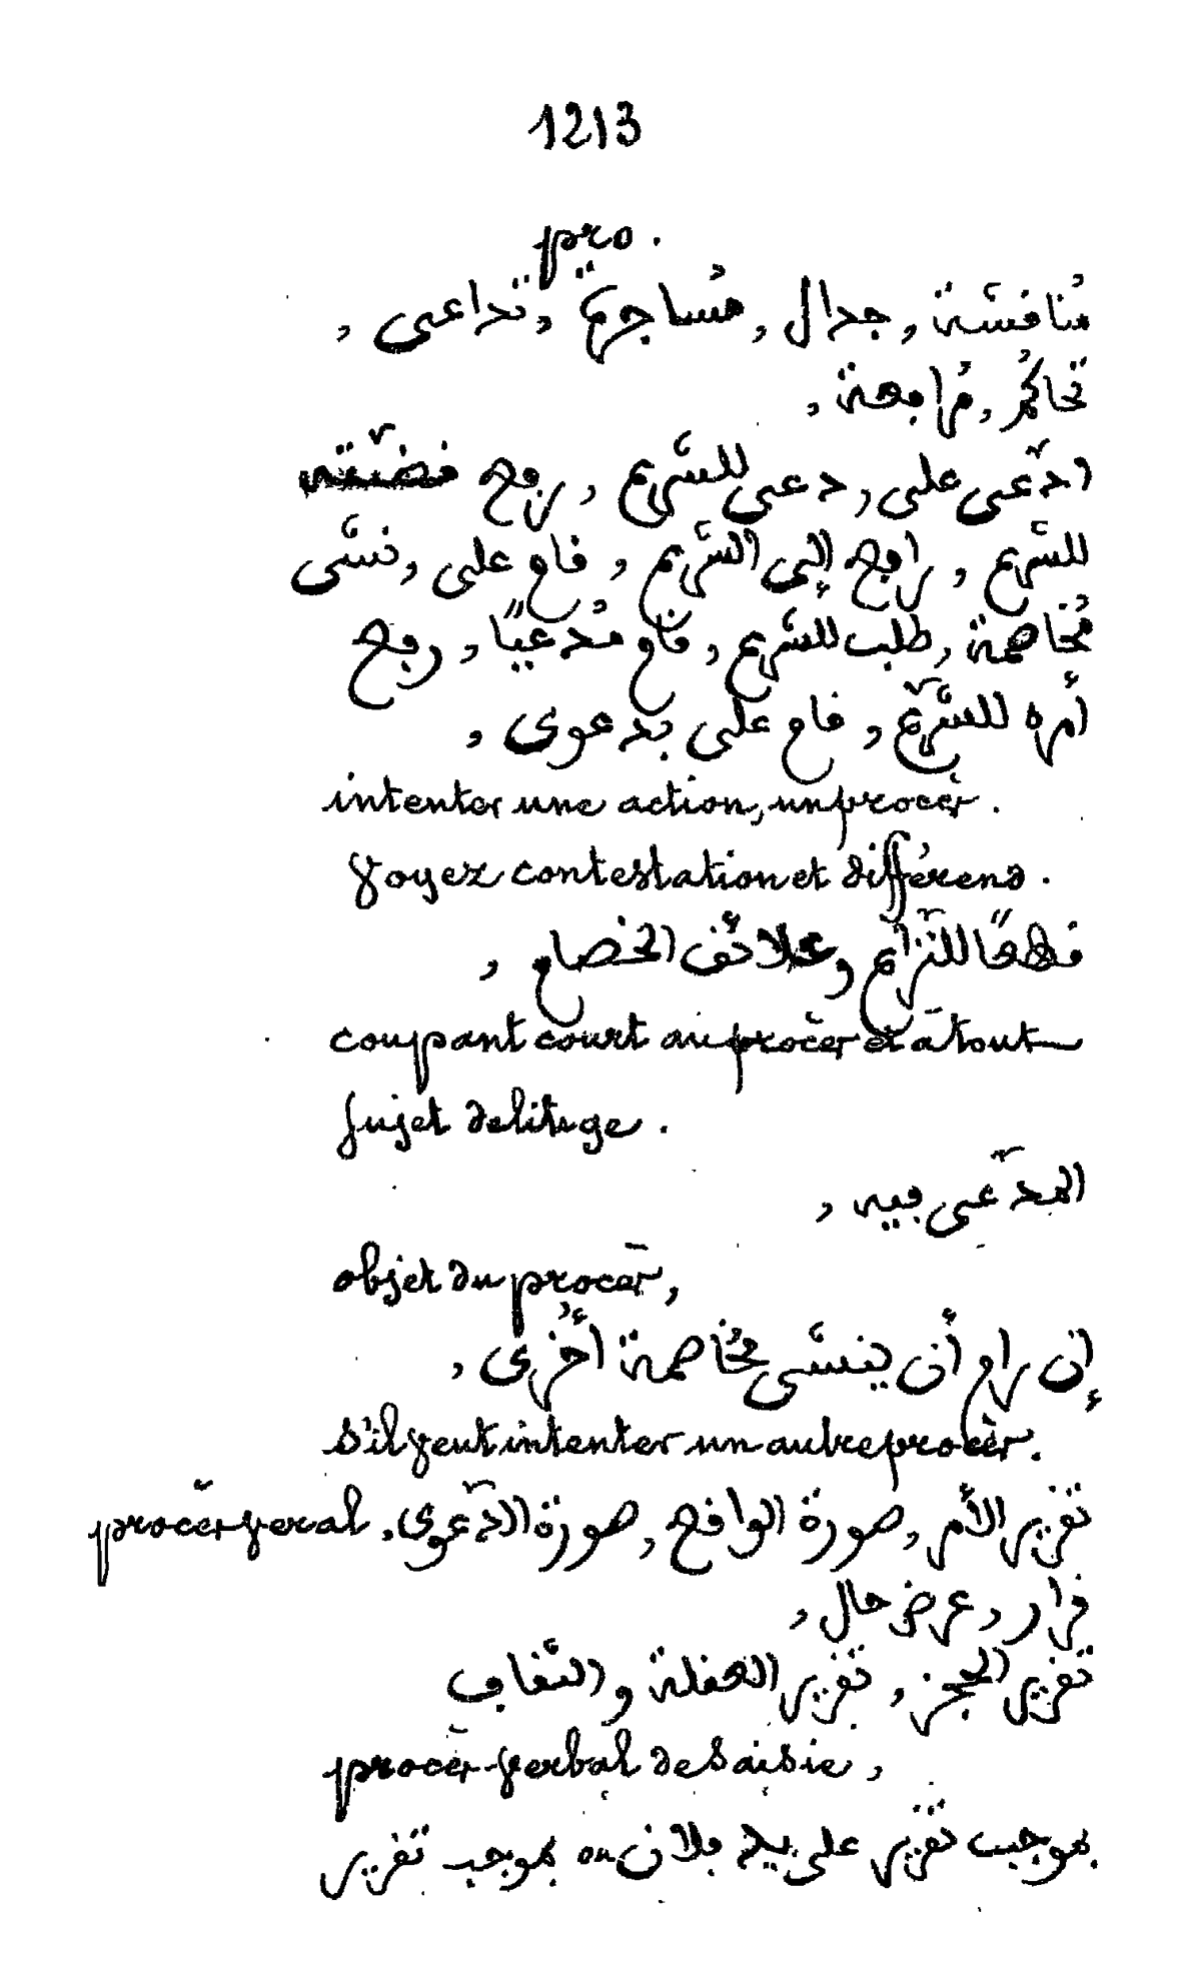 1213
pro.
مُنافشة, جدال, مُساجرة, تداعى,
تحاكُم, مُرابعة,
ادّعى على, دعى للشرع, رفع قضيّته
للشرع, رافع إلى الشرع, قام على, نشى
مُخاصمة, طلب للشرع, قام مُدعيًا, رفع
أمره للشّرع, قام على بدعوى,
intenter une action, un procès.
Voyez contestation et différend.
قطعًا للنّزاع وعلائق الخصام,
coupant court au procès et à tout
sujet de litige.
المدّعى فيه,
objet du procès,
إن رام أن ينشى مُخاصمة أُخرى,
s'il veut intenter un autre procès.
تقرير الأمر, صورة الواقع, صورة الدّعوى, procès-veral
قرار, عرض حال,
تقرير الحجز, تقرير العقلة والثقاف
procès-verbal de saisie,
بموجب تقرير على يد فلان ou بموجب تقرير